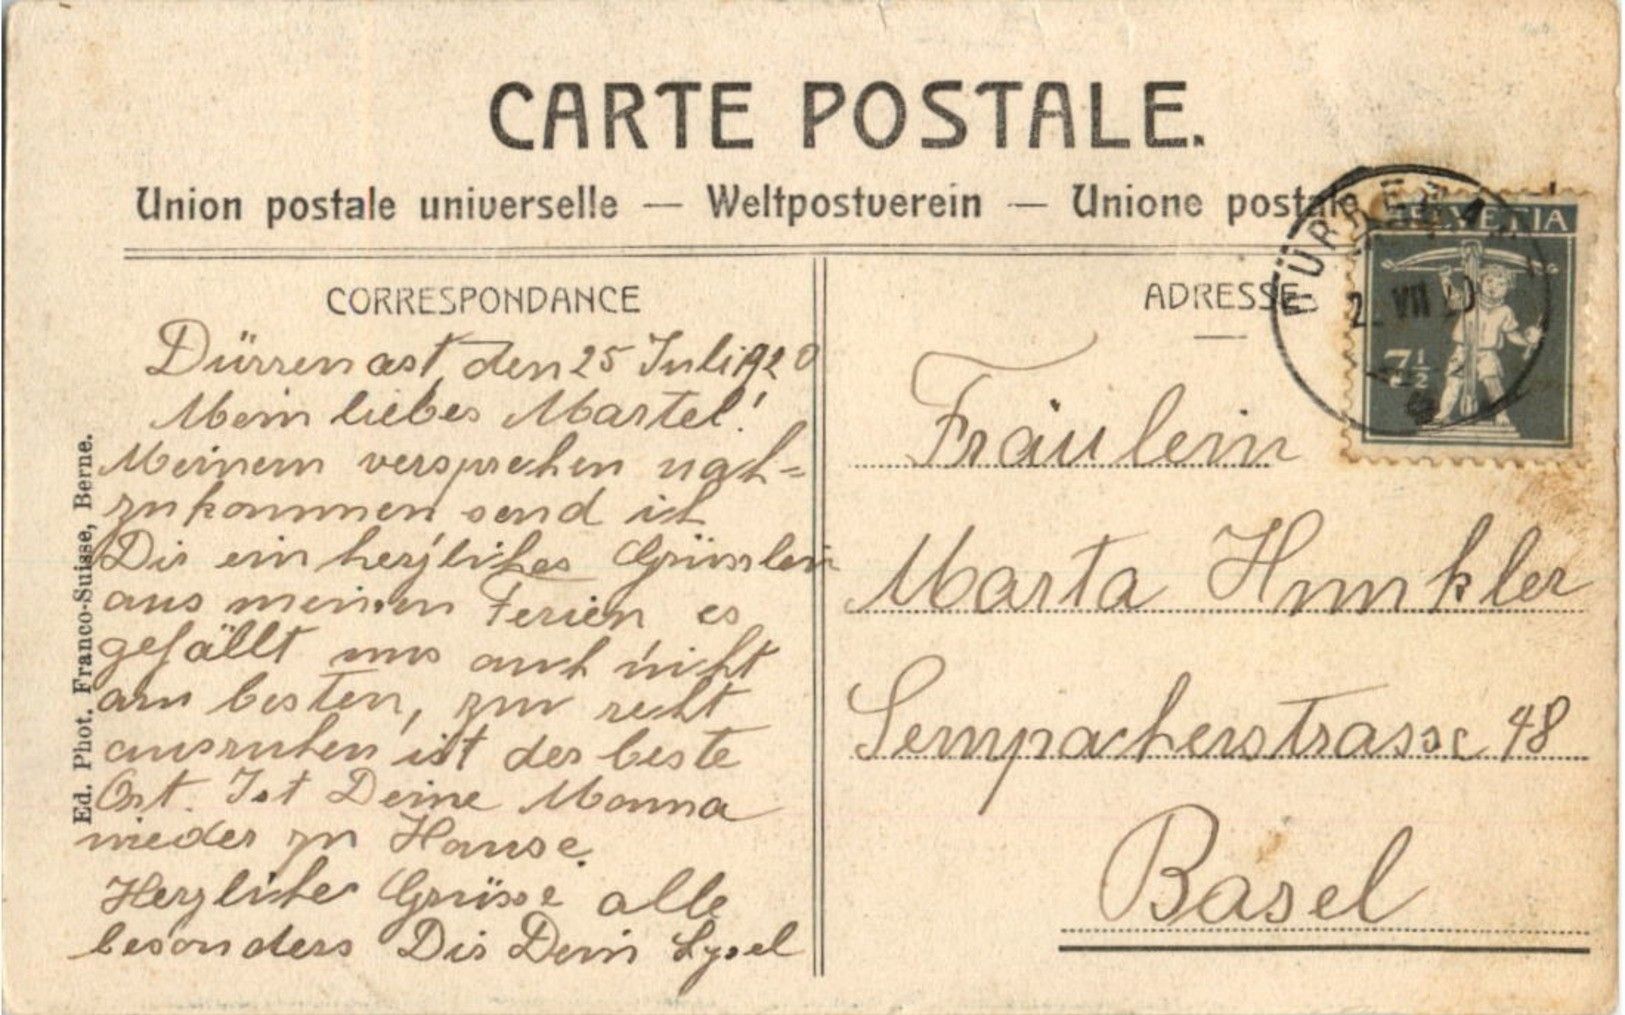 CARTE POSTALE.
Union postale universelle — Weltpostverein — Unione postale
HELVETIA
7½
CORRESPONDANCE
ADRESSE
Dürrenast, den 25 Juli 1920
Mein liebes Martel!
Meinem versprechen nach=
zukommen send ich
Dir ein herzliches Grüsslein
aus meinen Ferien es
gefällt uns auch nicht
am besten, zum recht
ausruhen ist der beste
Ort. Ist Deine Mamma
wieder zu Hause.
Herzliche Grüsse alle
besonders Dir Dein
Fräulein
Marta Hunkler
Sempacherstrasse 48
Basel
Ed. Phot. Franco-Suisse, Berne.